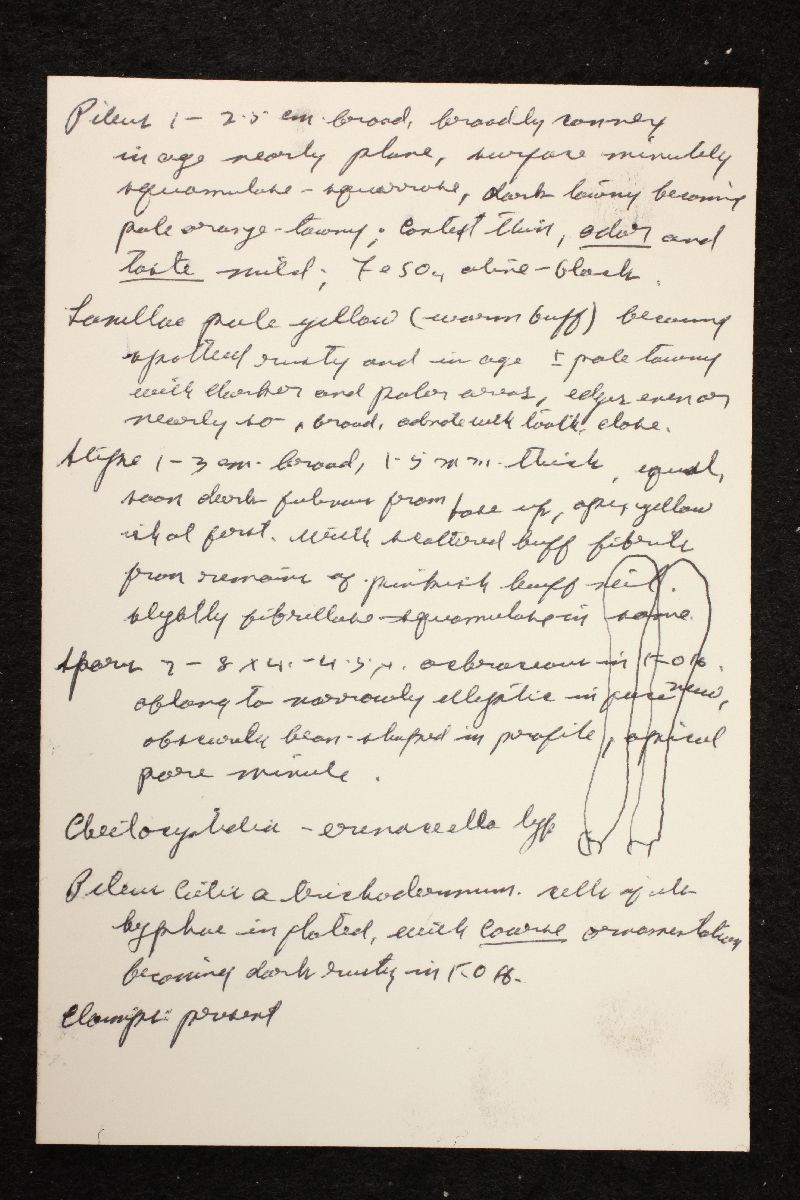 Pileus 1 - 2.5 cm broad, broadly convex
in age nearly plane, surface minutely
squamulose - squarrose, dark tawny becoming
pale orange-tawny; context thin, odor and
taste mild; FeSO4 olive-black.
Lamellae pale yellow (warm buff) becoming
spotted rusty and in age ± pale tawny
with darker and paler areas, edges even or
nearly so, broad, adnate with tooth, close.
Stipe 1-3 cm. broad, 1-5 mm. thick, equal,
soon dark fulvous from base up, apex yellow
ish at first. with scattered buff fibrils
from remains of pinkish buff veil.
slightly fibrillose-squamulose in some.
Spores 7 - 8 x 4. - 4.5 µ. ochraceous in KOH.
oblong to narrowly elliptic in face view,
obscurely bean-shaped in profile, apical
pore minute.
Cheilocystidia - erinaceella type
Pileus cutis a trichodermium. cells of the
hyphae inflated, with coarse ornamentation
becoming dark rusty in KOH.
Clamps: present